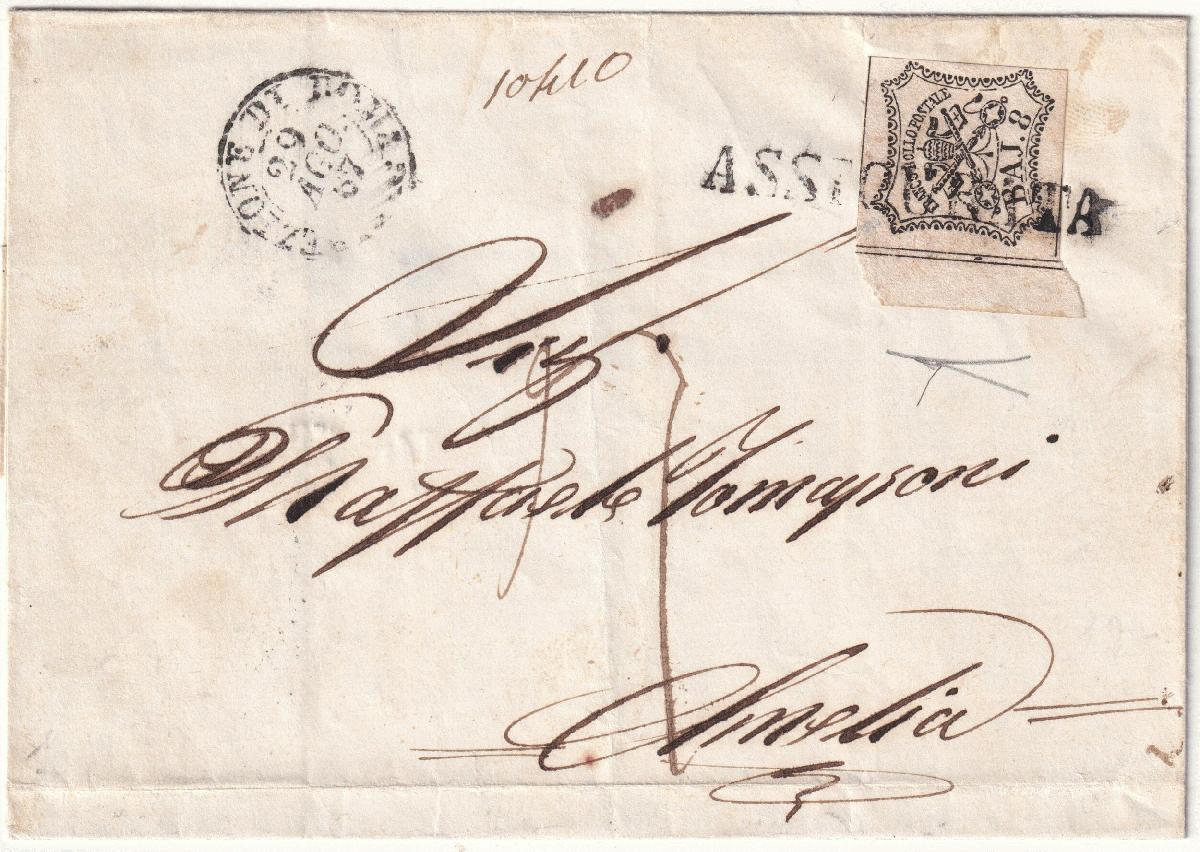 10410
DIREZIONE DI ROMA
29
AGO.
57
ASSICURATA
FRANCO BOLLO POSTALE
BAJ. 8
Sig
Raffaele Tomassoni
Amelia